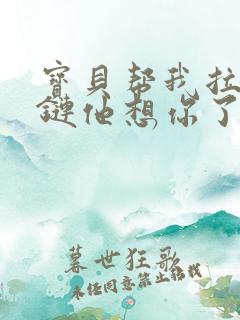 寳貝幫我拉
鏈他想你了
暮世狂歌
未经同意禁止转载